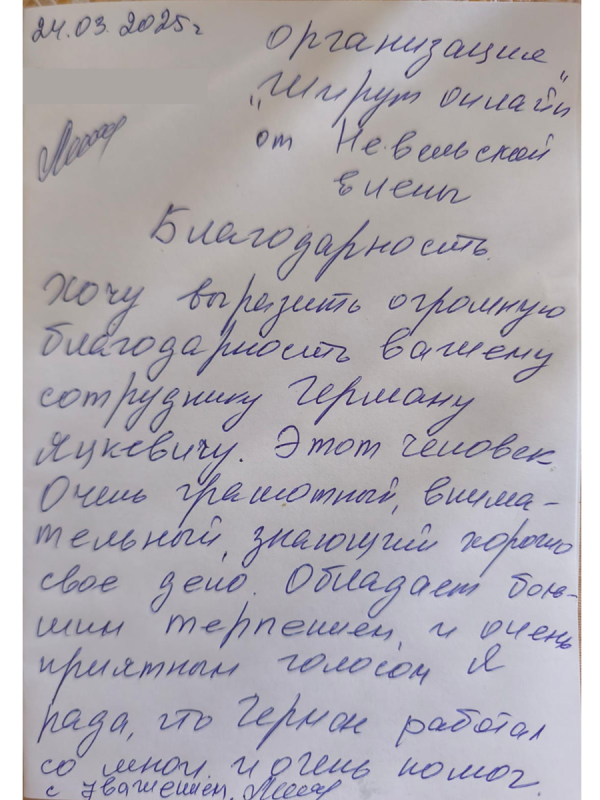 24.03.2025г
организация
"Шируп онлайн"
от Невельской
Елены
Благодарность.
Хочу выразить огромную
благодарность вашему
сотруднику Герману
Яцкевичу. Этот человек
Очень грамотный, внима-
тельный, знающий хорошо
свое дело. Обладает боль-
шим терпением, и очень
приятным голосом Я
рада, что Герман работал
со мной и очень помог.
с уважением,